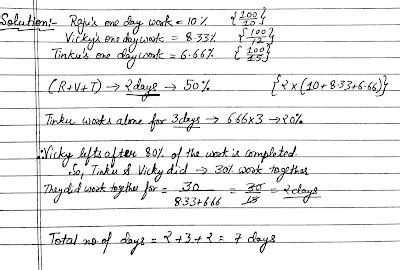 Solution:- Raju's one day work = 10% {100/10}
Vicky's one day work = 8.33% {100/12}
Tinku's one day work = 6.66% {100/15}
(R+V+T) → 2 days → 50% {2 x (10+8.33+6.66)}
Tinku works alone for 3 days → 6.66x3 → 20%
∴ Vicky lefts after 80% of the work is completed
So, Tinku & Vicky did → 30% work together
They did work together for = 30/8.33+6.66 = 30/15 = 2 days
Total no of days = 2+3+2 = 7 days